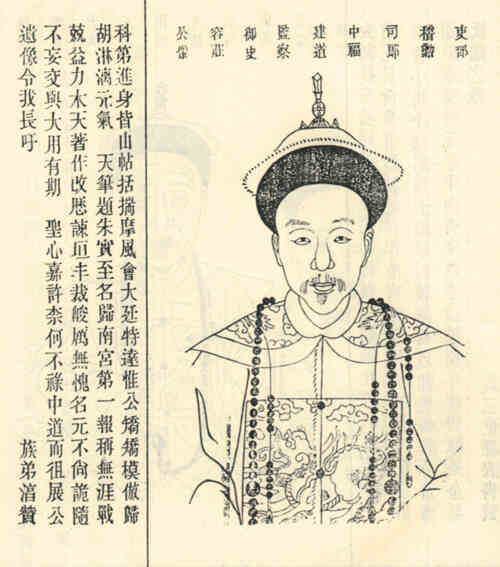 吏部
稽勳
司郎
中福
建道
監察
御史
容莊
公像
科第進身皆由帖括揣摩風會大廷特達惟公矯矯模倣歸
胡淋漓元氣 天筆題朱實至名歸南宮第一報稱無涯戰
兢益力木天著作改歷諫垣丰裁峻厲無愧名元不尚詭隨
不妄交與大用有期 聖心嘉許柰何不祿中道而徂展公
遺像令我長吁
族弟贊